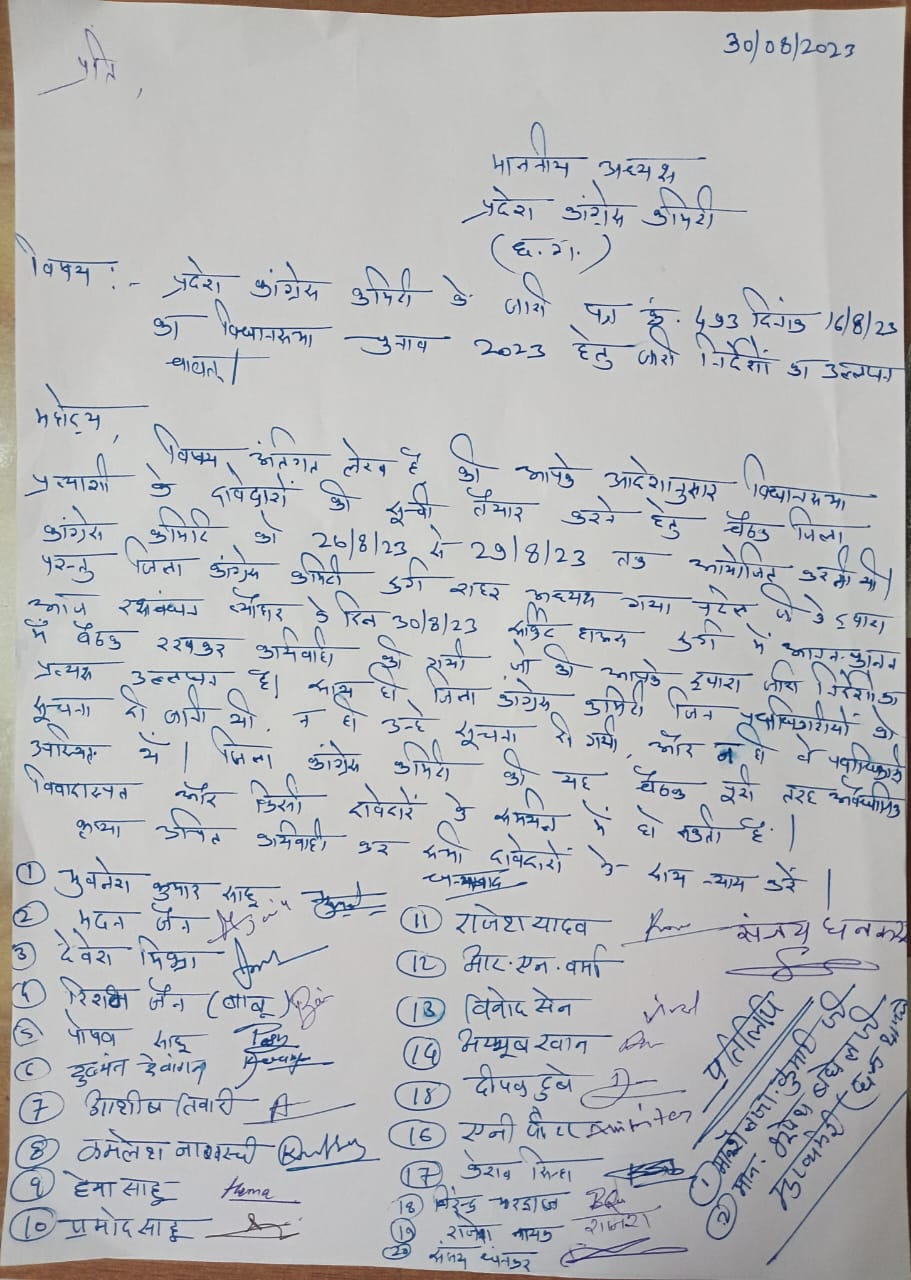 30/08/2023
प्रति,
माननीय अध्यक्ष
प्रदेश कांग्रेस कमिटी
(छ.ग.)
विषय :- प्रदेश कांग्रेस कमिटी के जारी पत्र क्रं. 593 दिनांक 16/8/23
का विधानसभा चुनाव 2023 हेतु जारी निर्देशों का उल्लघन
बाबत्।
महोदय,
विषय अंतिगत लेख है की आपके आदेशानुसार विधानसभा
प्रत्याशी के दावेदारों की सूची तैयार करने हेतु बैठक जिला
कांग्रेस कमिटि को 26/8/23 से 29/8/23 तक आयोजित करनी थी।
परन्तु जिला कांग्रेस कमिटी दुर्ग शहर अध्यक्ष गया पटेल जी के द्वारा
आज रक्षाबंधन त्यौहार के दिन 30/8/23 सर्किट हाऊस दुर्ग में आनन-फानन
में बैठक रखकर कार्यवाही की गयी जो की आपके द्वारा जारी निर्देश का
प्रत्यक्ष उल्लघन है। साथ ही जिला कांग्रेस कमिटी जिन पदाधिकारीयों को
सूचना दी जानी थी, न ही उन्हे सूचना दी गयी, और न ही वे पदाधिकारी
उपस्थित थे। जिला कांग्रेस कमिटी की यह बैठक पूरी तरह अवैधानिक
विवादास्पद और किसी दावेदारों के समर्थन में हो सकती है।
कृप्या उचित कार्यवाही कर सभी दावेदारों के साथ न्याय करें।
धन्यवाद
1 भुवनेश कुमार साहू
2 मदन जैन
3 देवेश मिश्रा
4 रिशभ जैन (बाबू)
5 पोषण साहू
6 दुष्यंत देवांगन
7 आशीष तिवारी
8 कमलेश नागरची
9 हेमा साहू Hema
10 प्रमोद साहू
11 राजेश यादव
संजय धनकर
12 आर. एन. वर्मा
13 विनोद सेन
14 अय्यूब खान
15 दीपक दुबे
16 एनी पीटर
17 केशव सिन्हा
18 विरेन्द्र भारद्वाज
19 राजेश नायक राजेश
20 संजय धनकर
प्रतिलिपि
1 कुमारी जी
2 मान. भूपेश बघेल जी